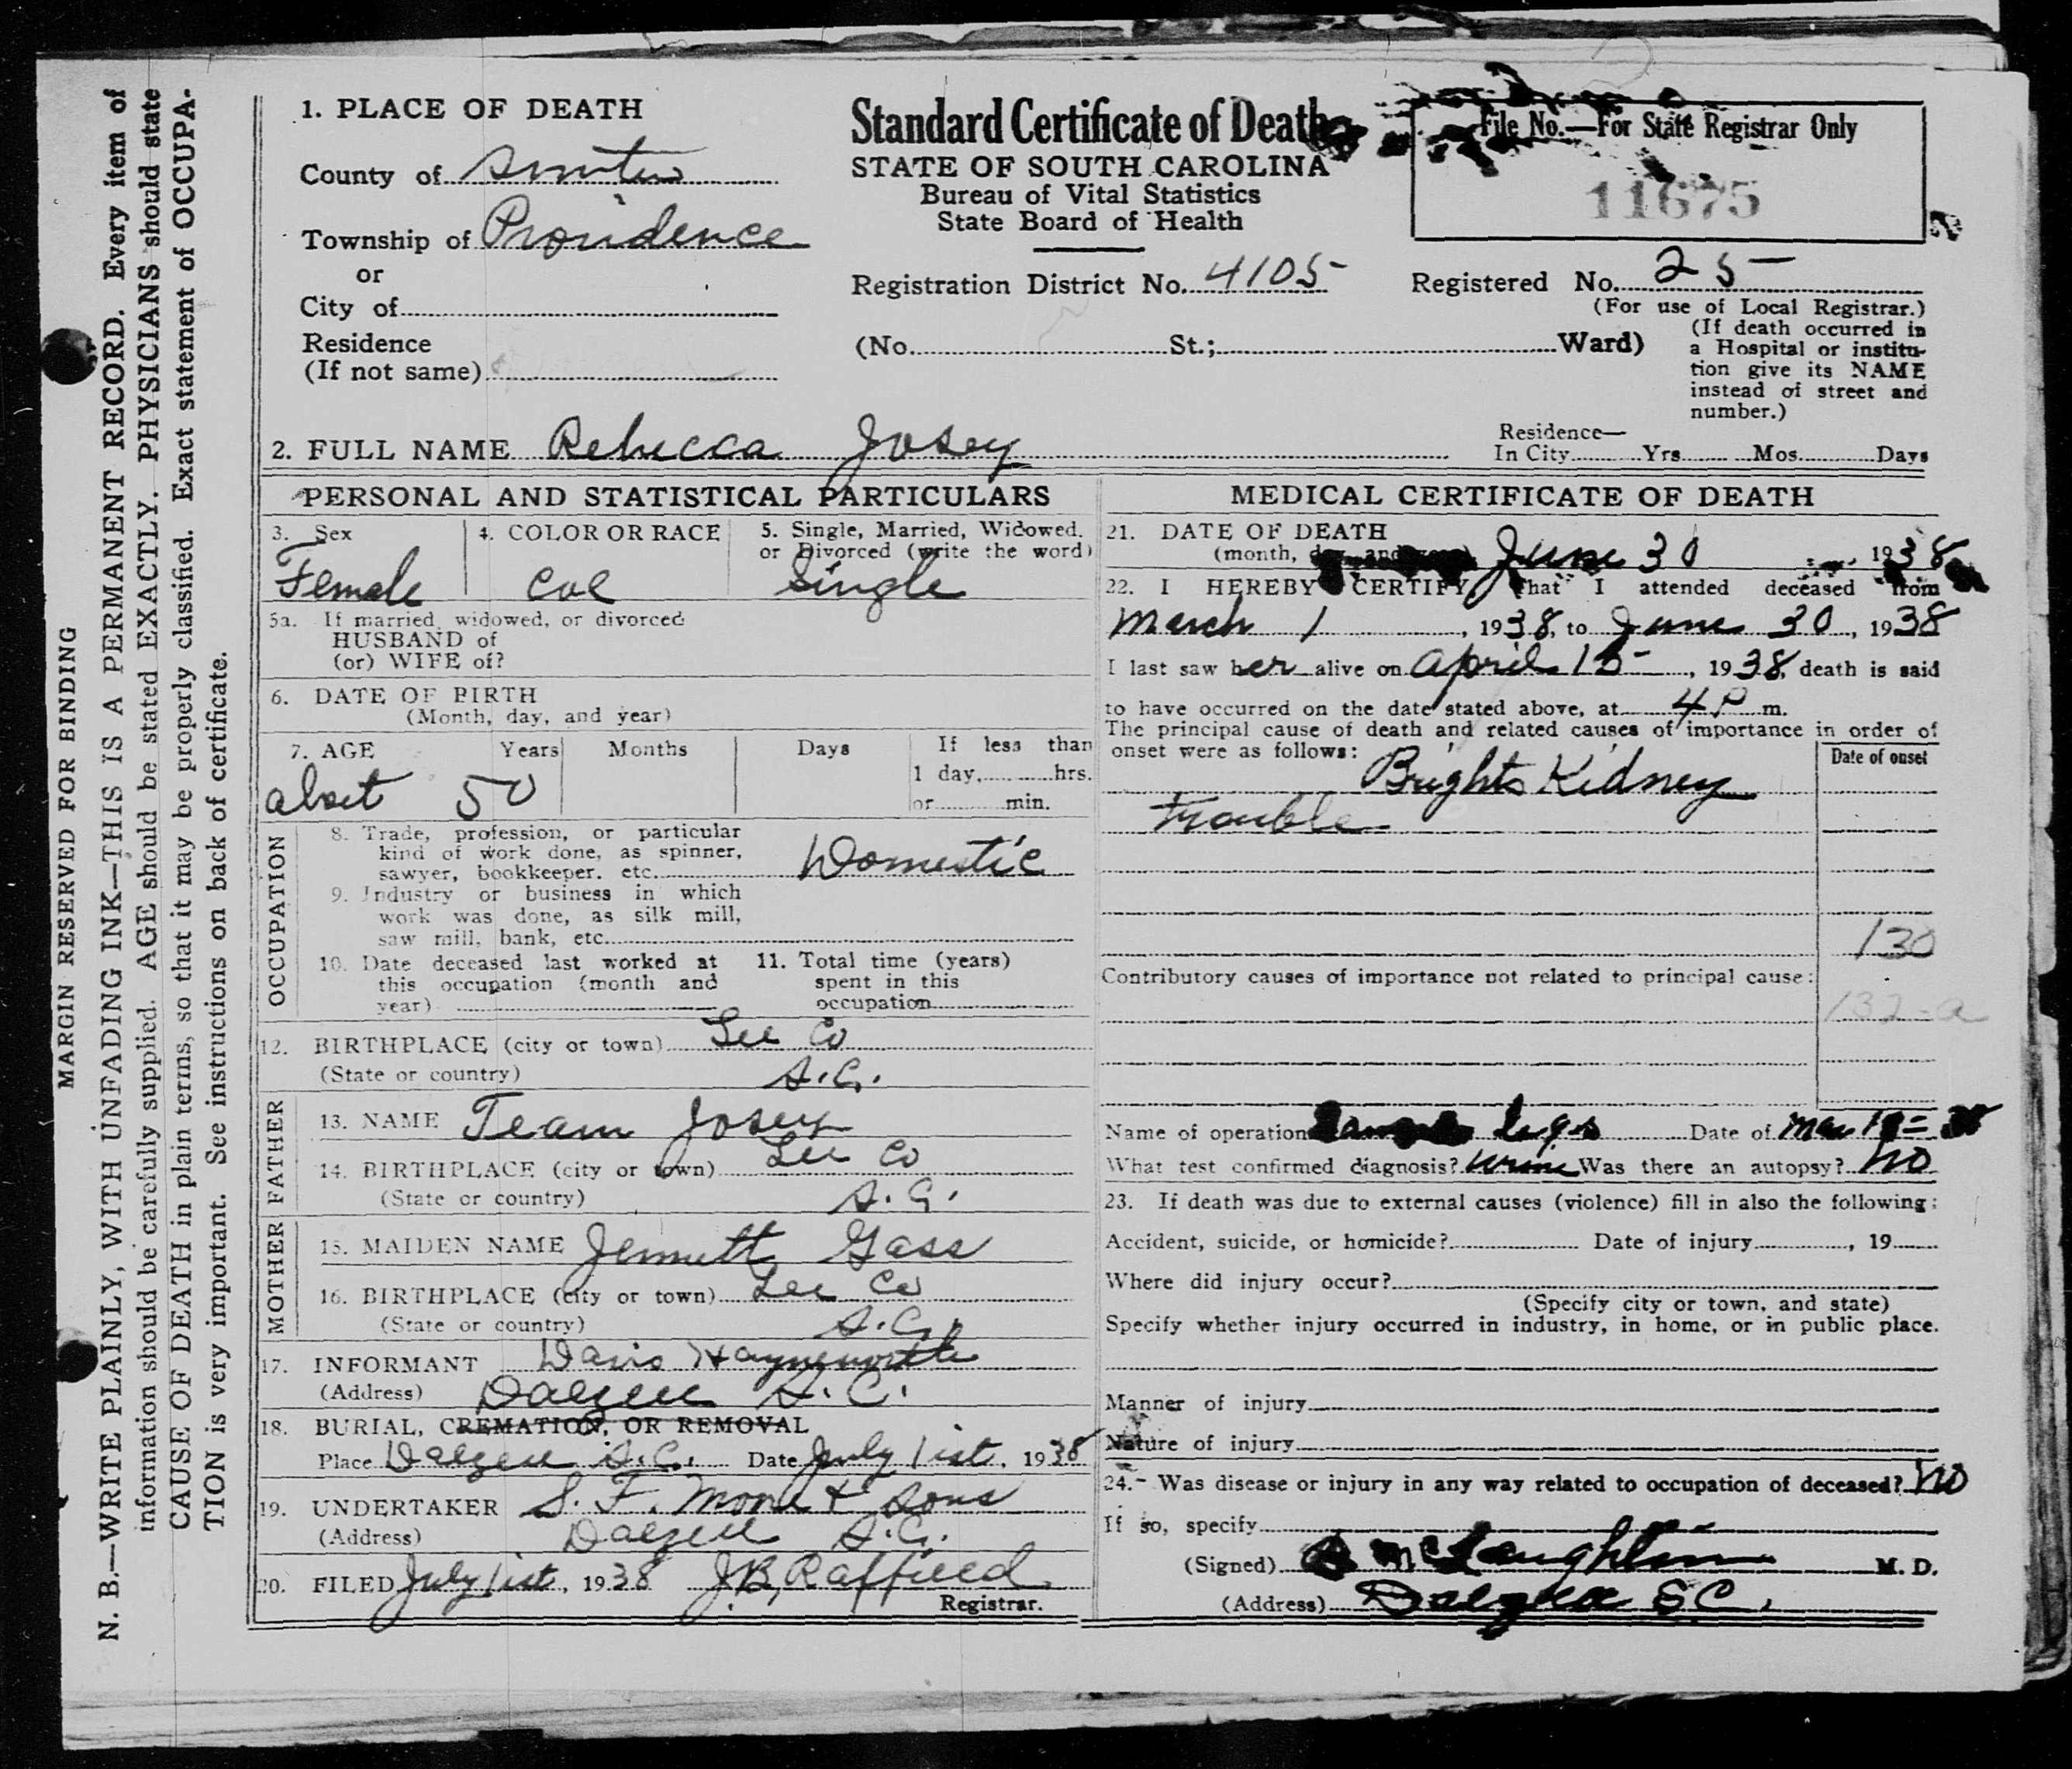 MARGIN RESERVED FOR BINDING
N. B.—WRITE PLAINLY, WITH UNFADING INK—THIS IS A PERMANENT RECORD. Every item of
information should be carefully supplied. AGE should be stated EXACTLY. PHYSICIANS should state
CAUSE OF DEATH in plain terms, so that it may be properly classified. Exact statement of OCCUPA-
TION is very important. See instructions on back of certificate.
1. PLACE OF DEATH
County of Sumter
Township of Providence
or
City of
Residence
(If not same)
Standard Certificate of Death
STATE OF SOUTH CAROLINA
Bureau of Vital Statistics
State Board of Health
File No.—For State Registrar Only
11675
Registration District No. 4105
Registered No. 25
(For use of Local Registrar.)
(No. St.; Ward)
(If death occurred in
a Hospital or institu-
tion give its NAME
instead of street and
number.)
2. FULL NAME Rebecca Josey
Residence—
In City Yrs Mos. Days
PERSONAL AND STATISTICAL PARTICULARS
3. Sex
Female
4. COLOR OR RACE
Col
5. Single, Married, Widowed.
or Divorced (write the word)
Single
5a. If married, widowed, or divorced
HUSBAND of
(or) WIFE of?
6. DATE OF BIRTH
(Month, day, and year)
7. AGE Years Months Days If less than
1 day, hrs.
or min.
about 50
OCCUPATION
8. Trade, profession, or particular
kind of work done, as spinner,
sawyer, bookkeeper. etc. Domestic
9. Industry or business in which
work was done, as silk mill,
saw mill, bank, etc.
10. Date deceased last worked at
this occupation (month and
year)
11. Total time (years)
spent in this
occupation
12. BIRTHPLACE (city or town) Lee Co
(State or country) S.C.
FATHER
13. NAME Team Josey
14. BIRTHPLACE (city or town) Lee Co
(State or country) S.C.
MOTHER
15. MAIDEN NAME Jennett Gass
16. BIRTHPLACE (city or town) Lee Co
(State or country) S.C.
17. INFORMANT Davis Haynsworth
(Address) Dalzell S.C.
18. BURIAL, CREMATION, OR REMOVAL
Place Dalzell S.C. Date July 1ist, 1938
19. UNDERTAKER S. F. & Sons
(Address) Dalzell S.C.
20. FILED July 1ist, 1938 J.B. Raffield
Registrar.
MEDICAL CERTIFICATE OF DEATH
21. DATE OF DEATH
(month, June 30 1938
22. I HEREBY CERTIFY, That I attended deceased from
March 1, 1938, to June 30, 1938
I last saw her alive on April 15, 1938, death is said
to have occurred on the date stated above, at 4 P m.
The principal cause of death and related causes of importance in order of
onset were as follows: Date of onset
Brights Kidney
trouble
130
Contributory causes of importance not related to principal cause:
132-a
Name of operation legs Date of
What test confirmed diagnosis? Urine Was there an autopsy? No
23. If death was due to external causes (violence) fill in also the following:
Accident, suicide, or homicide? Date of injury , 19
Where did injury occur?
(Specify city or town, and state)
Specify whether injury occurred in industry, in home, or in public place.
Manner of injury
Nature of injury
24. Was disease or injury in any way related to occupation of deceased? No
If so, specify
(Signed) McLaughlin M. D.
(Address) Dalzell S.C.